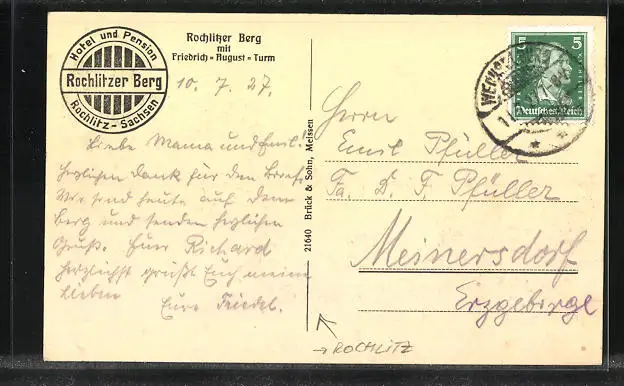 Hotel und Pension
Rochlitzer Berg
Rochlitz-Sachsen
Rochlitzer Berg
mit
Friedrich-August-Turm
10. 7. 27.
Liebe Mama und Emil!
Herzlichen Dank für den Brief.
Wir sind heute auf dem
Berg und senden herzlichen
Gruß. Euer Richard
Herzlichst grüßt Euch meine
Lieben
Eure Friedel.
21640 Brück & Sohn, Meissen
Herrn
Emil Pfüller
Fa. D. F. Pfüller
Meinersdorf
Erzgebirge
5 5
Deutsches Reich
→ ROCHLITZ